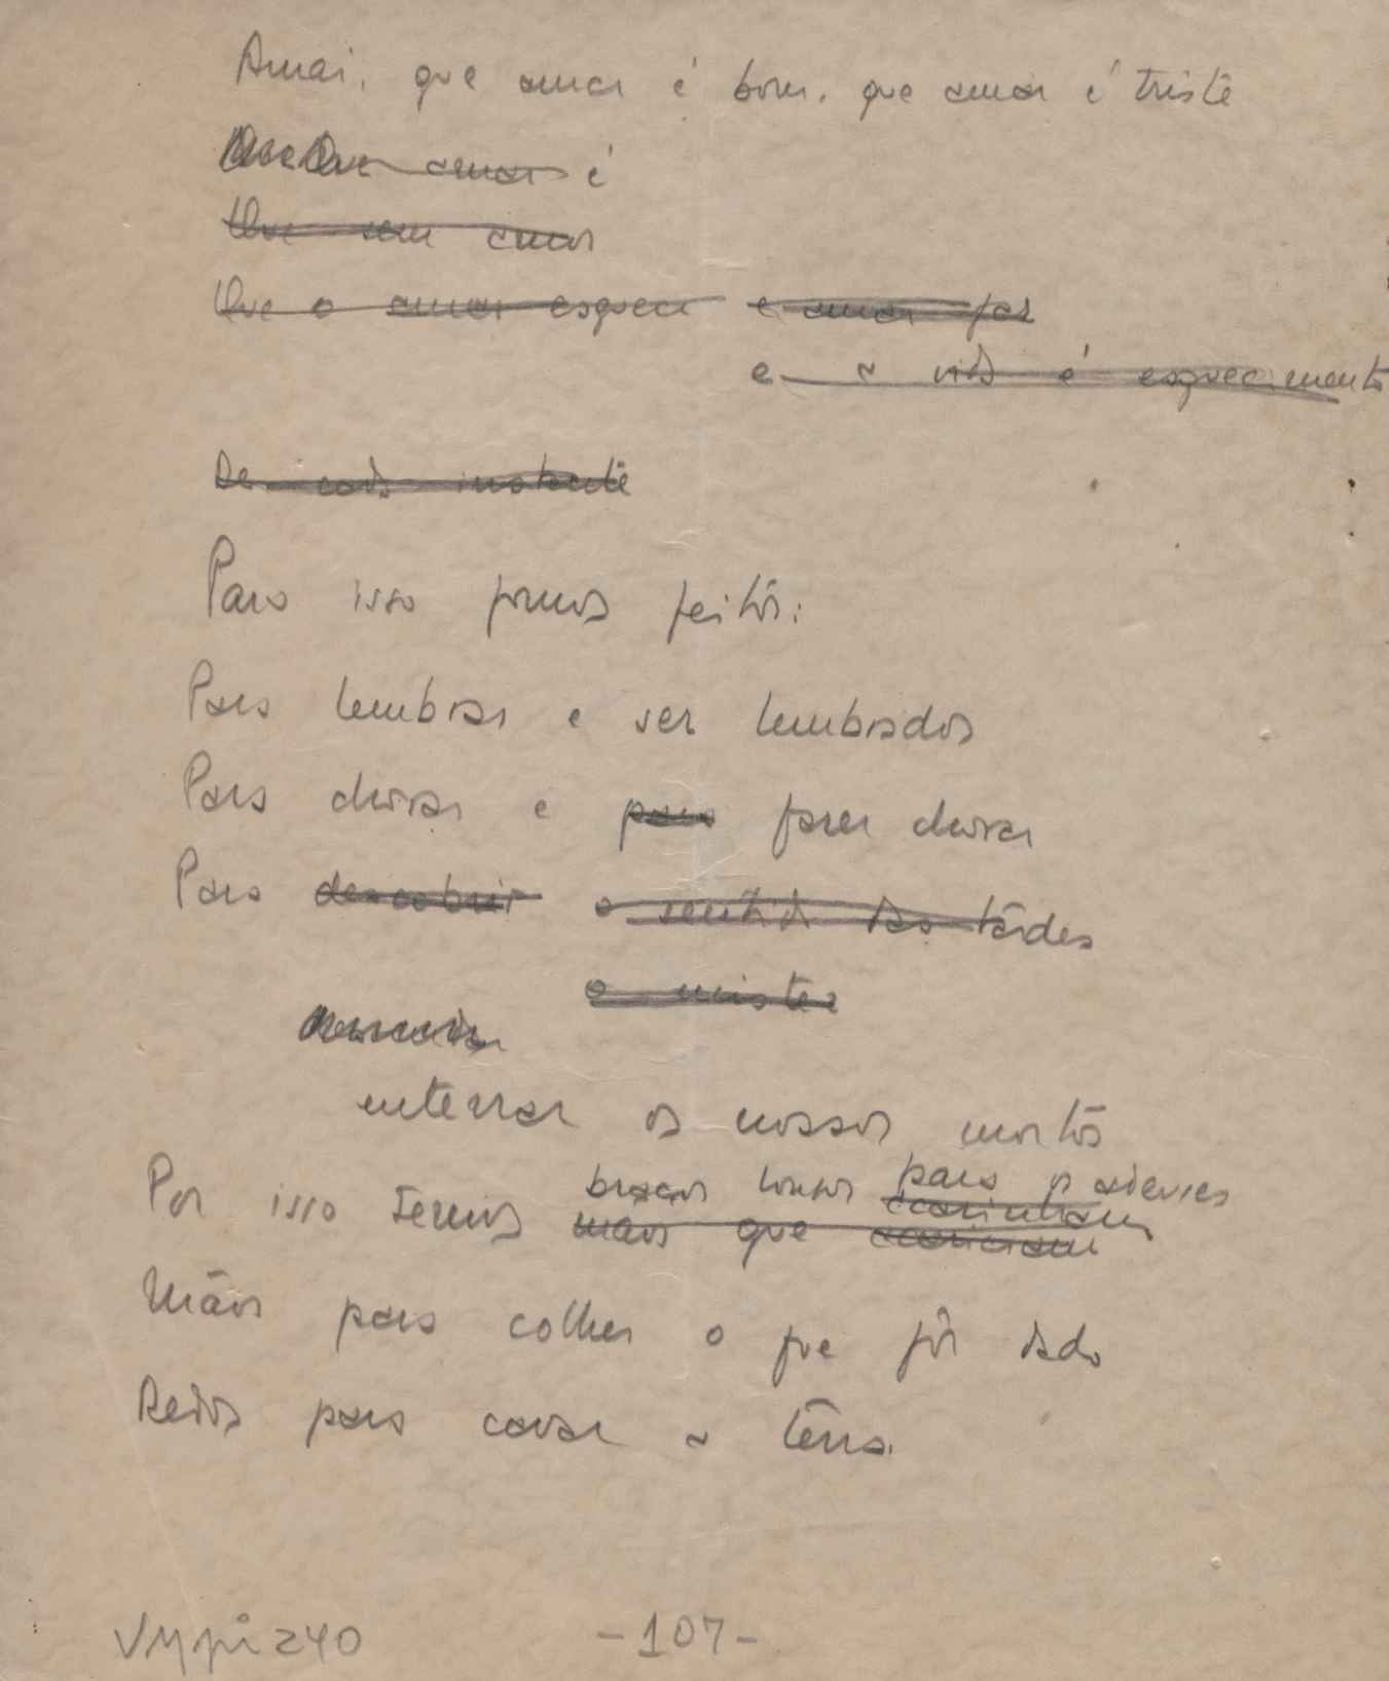 Amai, que amar é bom, que amar é triste
Que amar é
Que sem amar
Que o amar esquece e amar faz
e a vida é esquecimento
De cada instante
Para isso fomos feitos:
Para lembrar e ser lembrados
Para chorar e para fazer chorar
Para descobrir o sentido das tardes
o mister
enterrar os nossos mortos
braços longos para os adeuses
Por isso temos mãos que acarinham
acariciam
Mãos para colher o que foi dado
Dedos para cavar a terra.
VMpi240 -107-